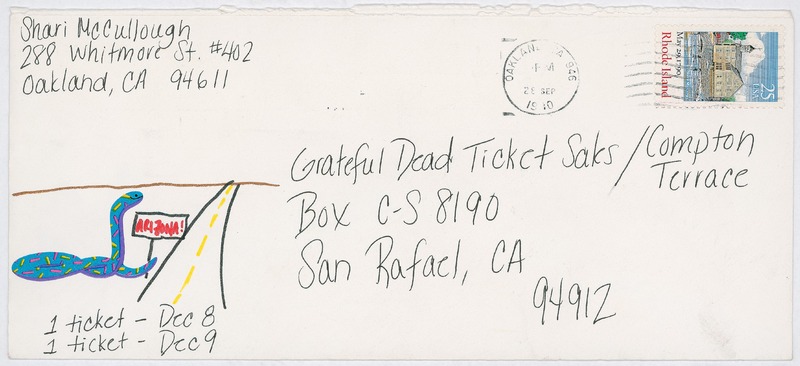 Shari McCullough
288 Whitmore St. #402
Oakland, CA 94611
OAKLAND, CA 946
PM
SEP
Rhode Island
May 29, 1790
25
USA
Grateful Dead Ticket Sales / Compton
Terrace
Box C-S 8190
San Rafael, CA
94912
ARIZONA!
1 ticket - Dec 8
1 ticket - Dec 9